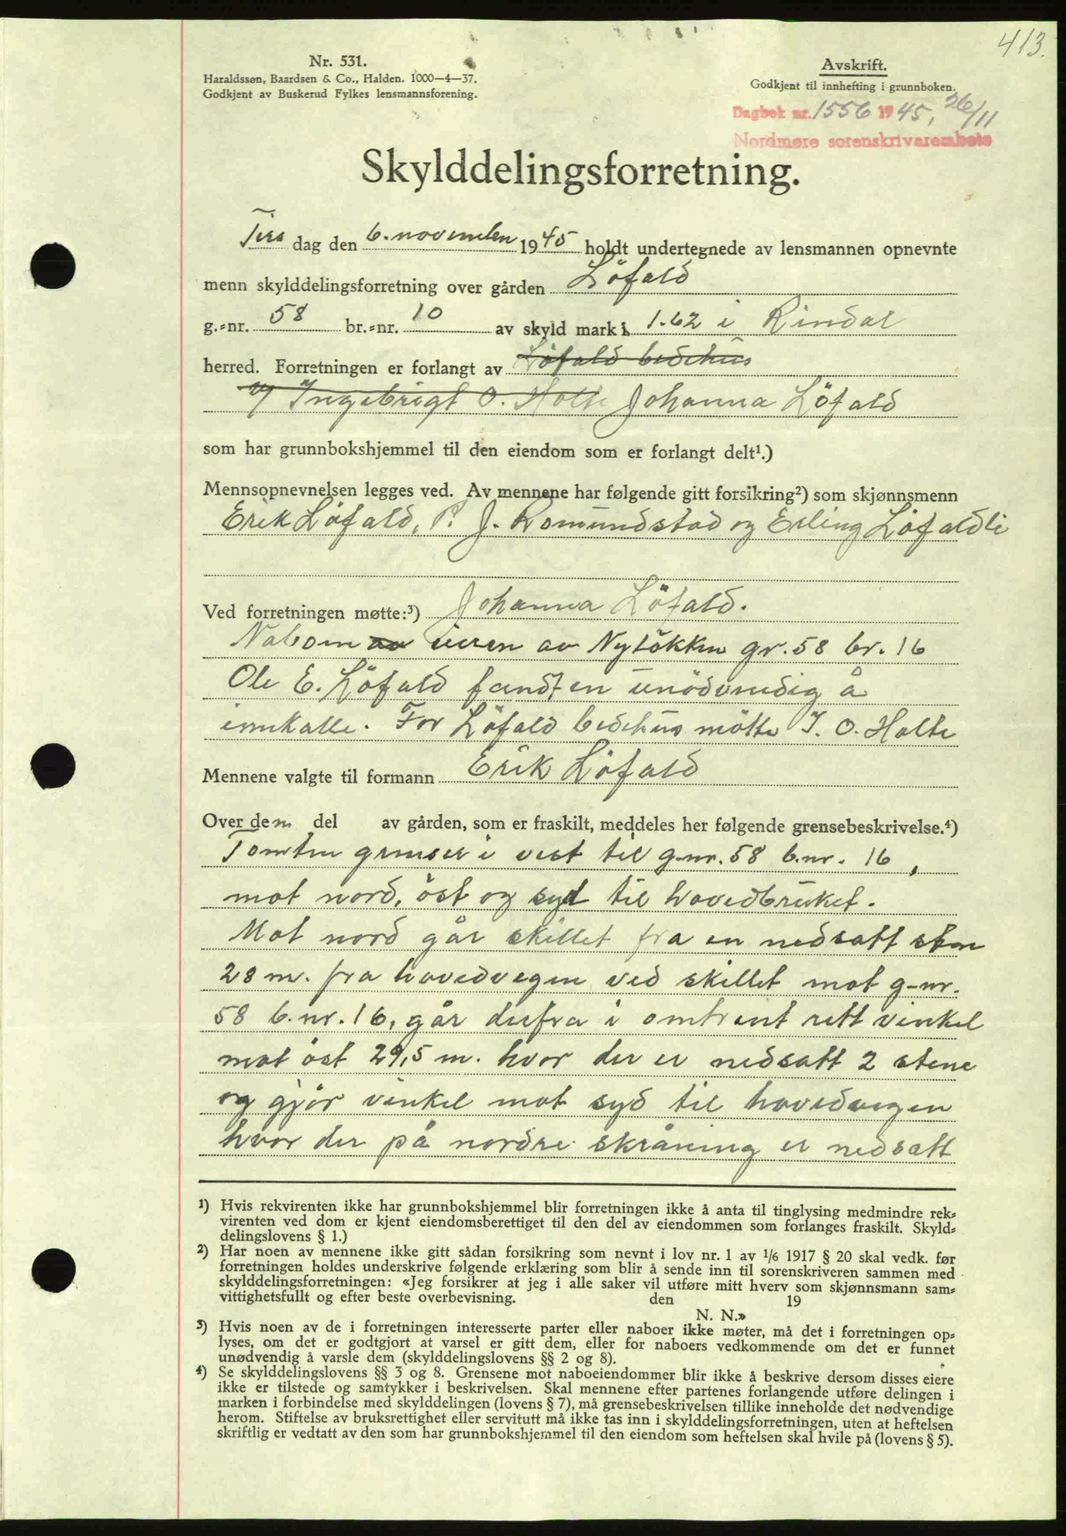 413.
Nr. 531.
Haraldssøn, Baardsen & Co., Halden. 1000—4—37.
Godkjent av Buskerud Fylkes lensmannsforening.
Avskrift.
Godkjent til innhefting i grunnboken.
Dagbok nr. 1556 1945, 26/11
Nordmøre sorenskrivarembete
Skylddelingsforretning.
Tirs dag den 6. november 1945 holdt undertegnede av lensmannen opnevnte
menn skylddelingsforretning over gården Löfald
g.=nr. 58 br.=nr. 10 av skyld mark 1.62 i Rindal
herred. Forretningen er forlangt av Löfald bedehus
v/ Ingebrigt O. Holte Johanna Löfald
som har grunnbokshjemmel til den eiendom som er forlangt delt¹.)
Mennsopnevnelsen legges ved. Av mennene har følgende gitt forsikring²) som skjønnsmenn
Erik Löfald, P. J. Romundstad og Erling Löfaldli
Ved forretningen møtte:³) Johanna Löfald.
Naboen eieren av Nylökken gr. 58 br. 16
Ole E. Löfald fandt en unödvendig å
innkalle. For Löfald bedehus mötte I. O. Holte
Mennene valgte til formann Erik Löfald
Over den del av gården, som er fraskilt, meddeles her følgende grensebeskrivelse.⁴)
Tomten grenser i vest til g-nr. 58 b.nr. 16,
mot nord, öst og syd til hovedbruket.
Mot nord går skillet fra en nedsatt sten
28 m. fra hovedvegen ved skillet mot g-nr.
58 b.nr. 16, går derfra i omtrent rett vinkel
mot öst 29,5 m. hvor der er nedsatt 2 stene
og gjör vinkel mot syd til hovedvegen
hvor der på nordre skråning er nedsatt
¹) Hvis rekvirenten ikke har grunnbokshjemmel blir forretningen ikke å anta til tinglysing medmindre rek=
virenten ved dom er kjent eiendomsberettiget til den del av eiendommen som forlanges fraskilt. Skyld=
delingslovens § 1.)
²) Har noen av mennene ikke gitt sådan forsikring som nevnt i lov nr. 1 av 1/6 1917 § 20 skal vedk. før
forretningen holdes underskrive følgende erklæring som blir å sende inn til sorenskriveren sammen med
skylddelingsforretningen: «Jeg forsikrer at jeg i alle saker vil utføre mitt hverv som skjønnsmann sam=
vittighetsfullt og efter beste overbevisning. den 19
N. N.»
³) Hvis noen av de i forretningen interesserte parter eller naboer ikke møter, må det i forretningen op=
lyses, om det er godtgjort at varsel er gitt dem, eller for naboers vedkommende om det er funnet
unødvendig å varsle dem (skylddelingslovens §§ 2 og 8).
⁴) Se skylddelingslovens §§ 3 og 8. Grensene mot naboeiendommer blir ikke å beskrive dersom disses eiere
ikke er tilstede og samtykker i beskrivelsen. Skal mennene efter partenes forlangende utføre delingen i
marken i forbindelse med skylddelingen (lovens § 7), må grensebeskrivelsen tillike inneholde det nødvendige
herom. Stiftelse av bruksrettighet eller servitutt må ikke tas inn i skylddelingsforretningen, uten at heftelsen
skriftlig er vedtatt av den som har grunnbokshjemmel til den eiendom som heftelsen skal hvile på (lovens § 5).